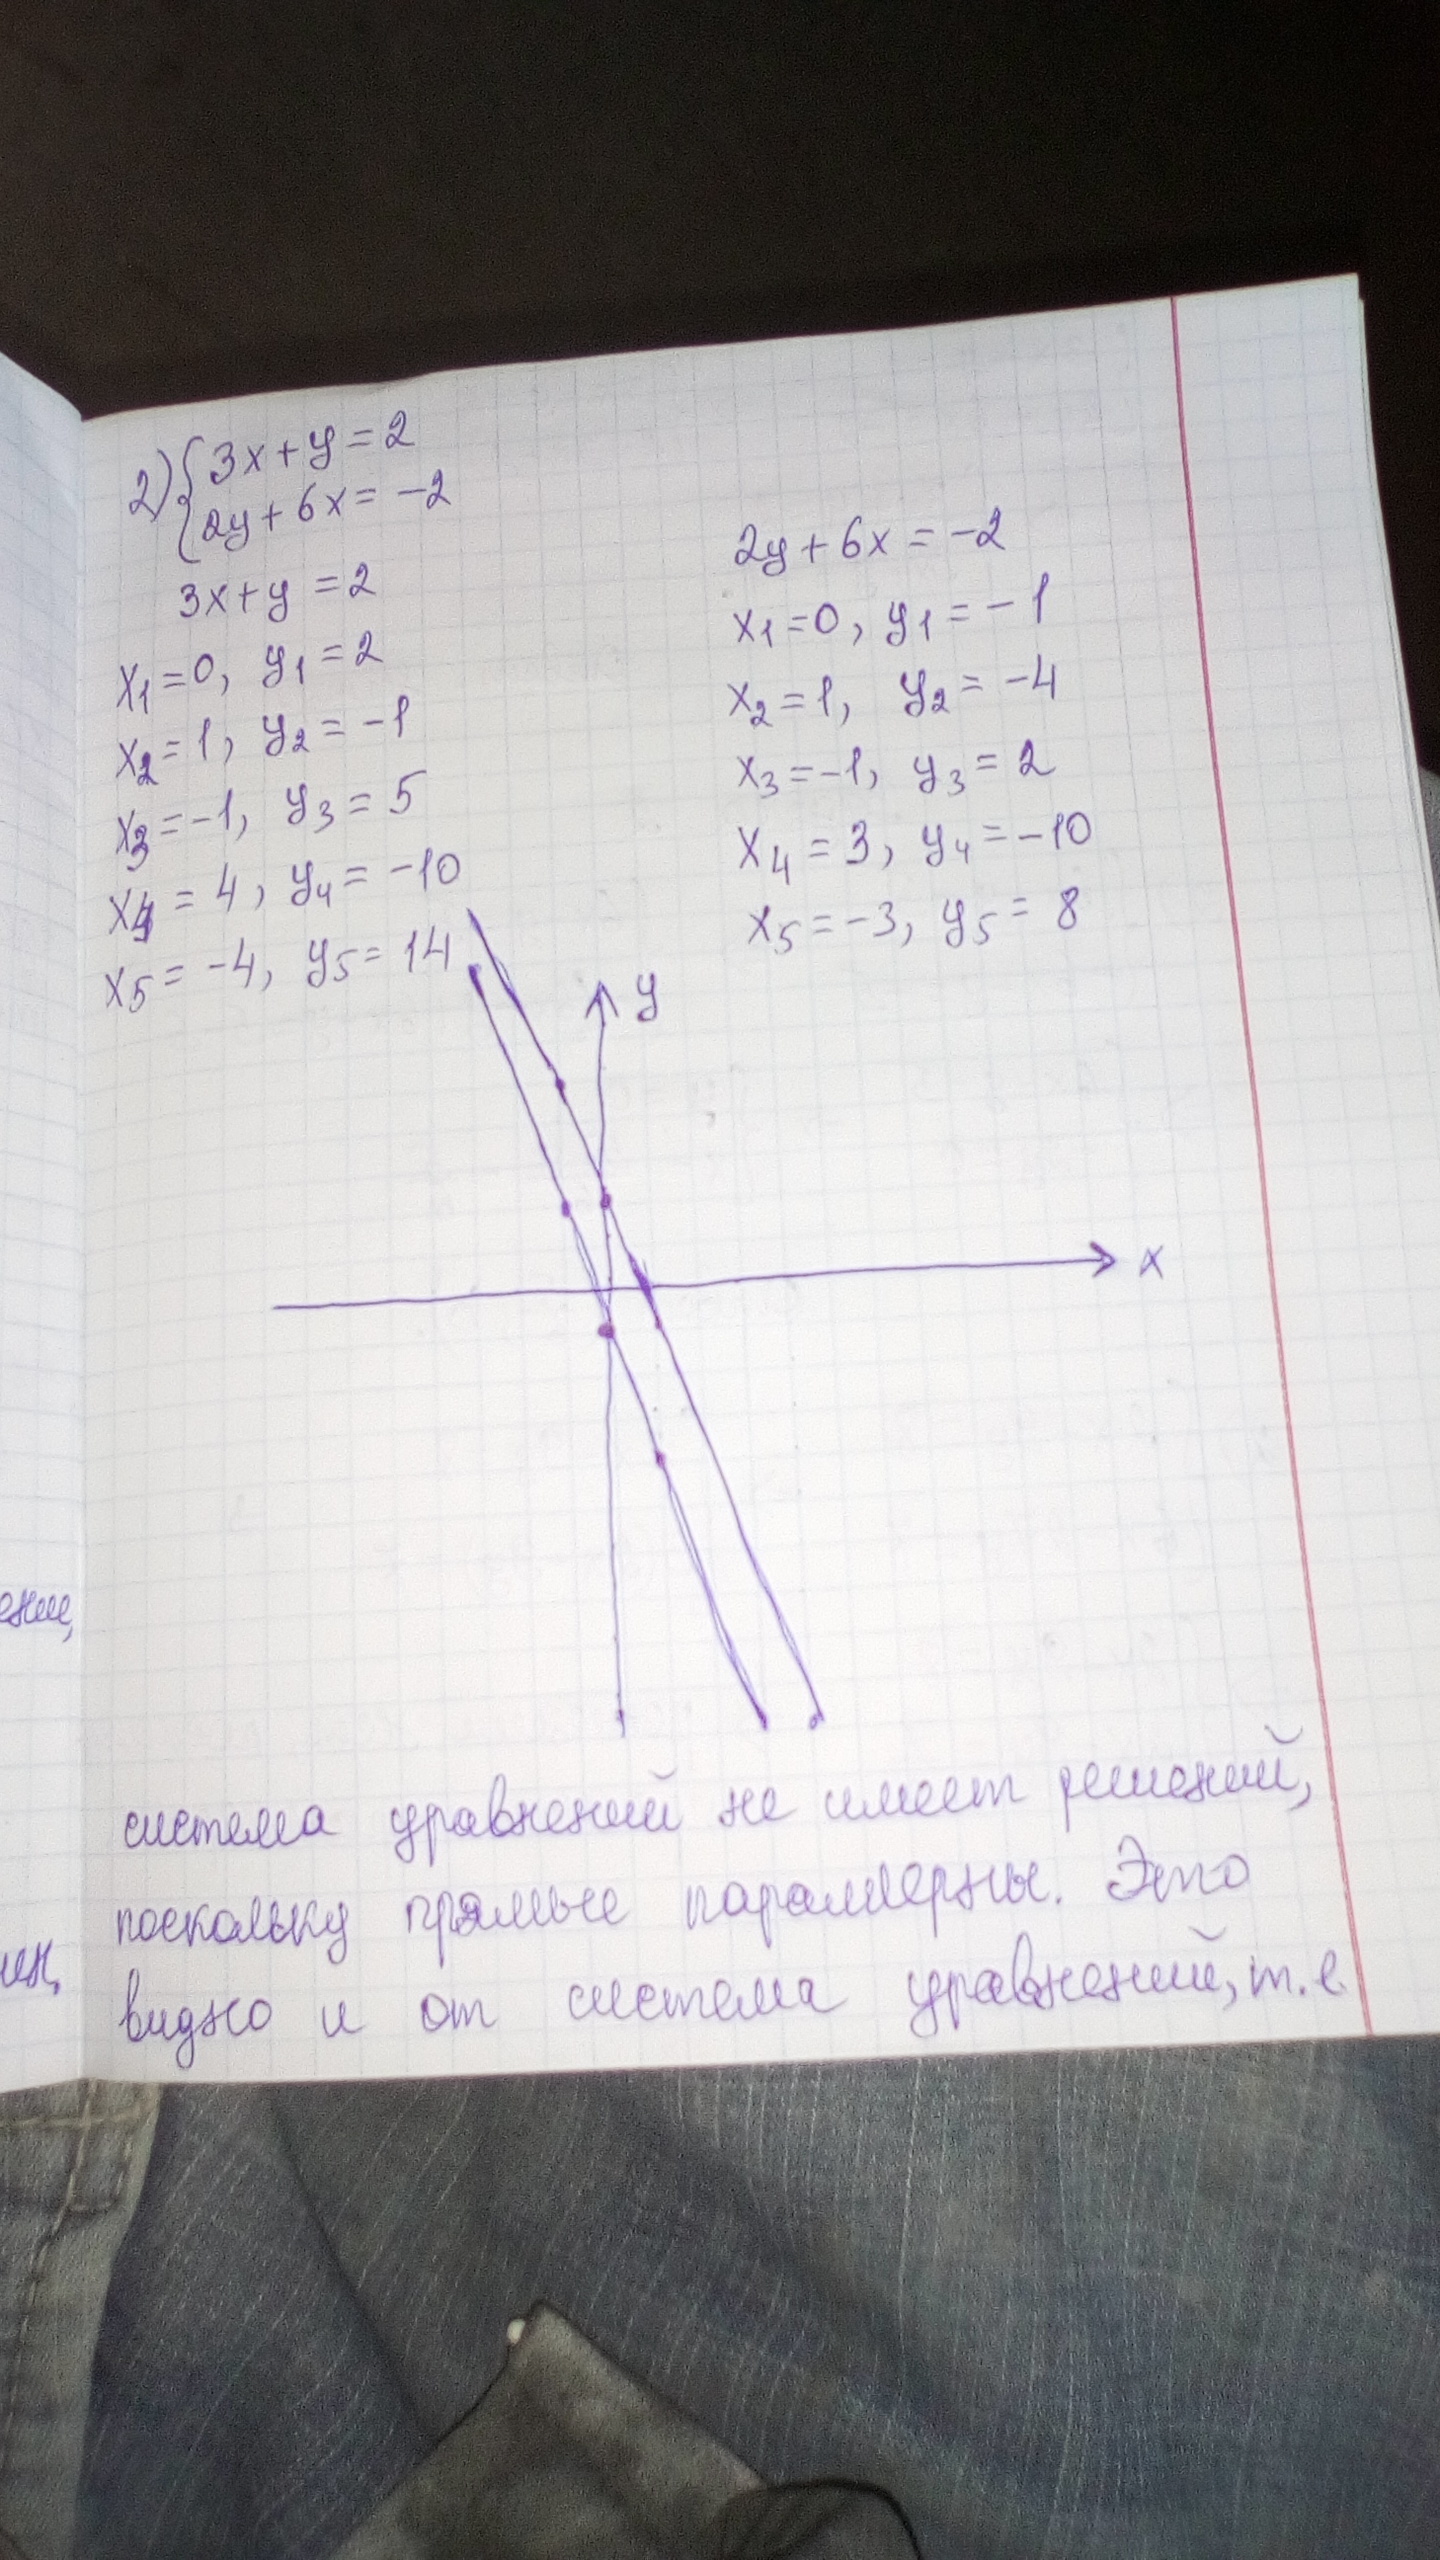 2) { 3x + y = 2
2y + 6x = -2
3x + y = 2
x1 = 0, y1 = 2
x2 = 1, y2 = -1
x3 = -1, y3 = 5
x4 = 4, y4 = -10
x5 = -4, y5 = 14
2y + 6x = -2
x1 = 0, y1 = -1
x2 = 1, y2 = -4
x3 = -1, y3 = 2
x4 = 3, y4 = -10
x5 = -3, y5 = 8
y
x
система уравнений не имеет решений,
поскольку прямые параллерны. Это
видно и от система уравнений, т.е